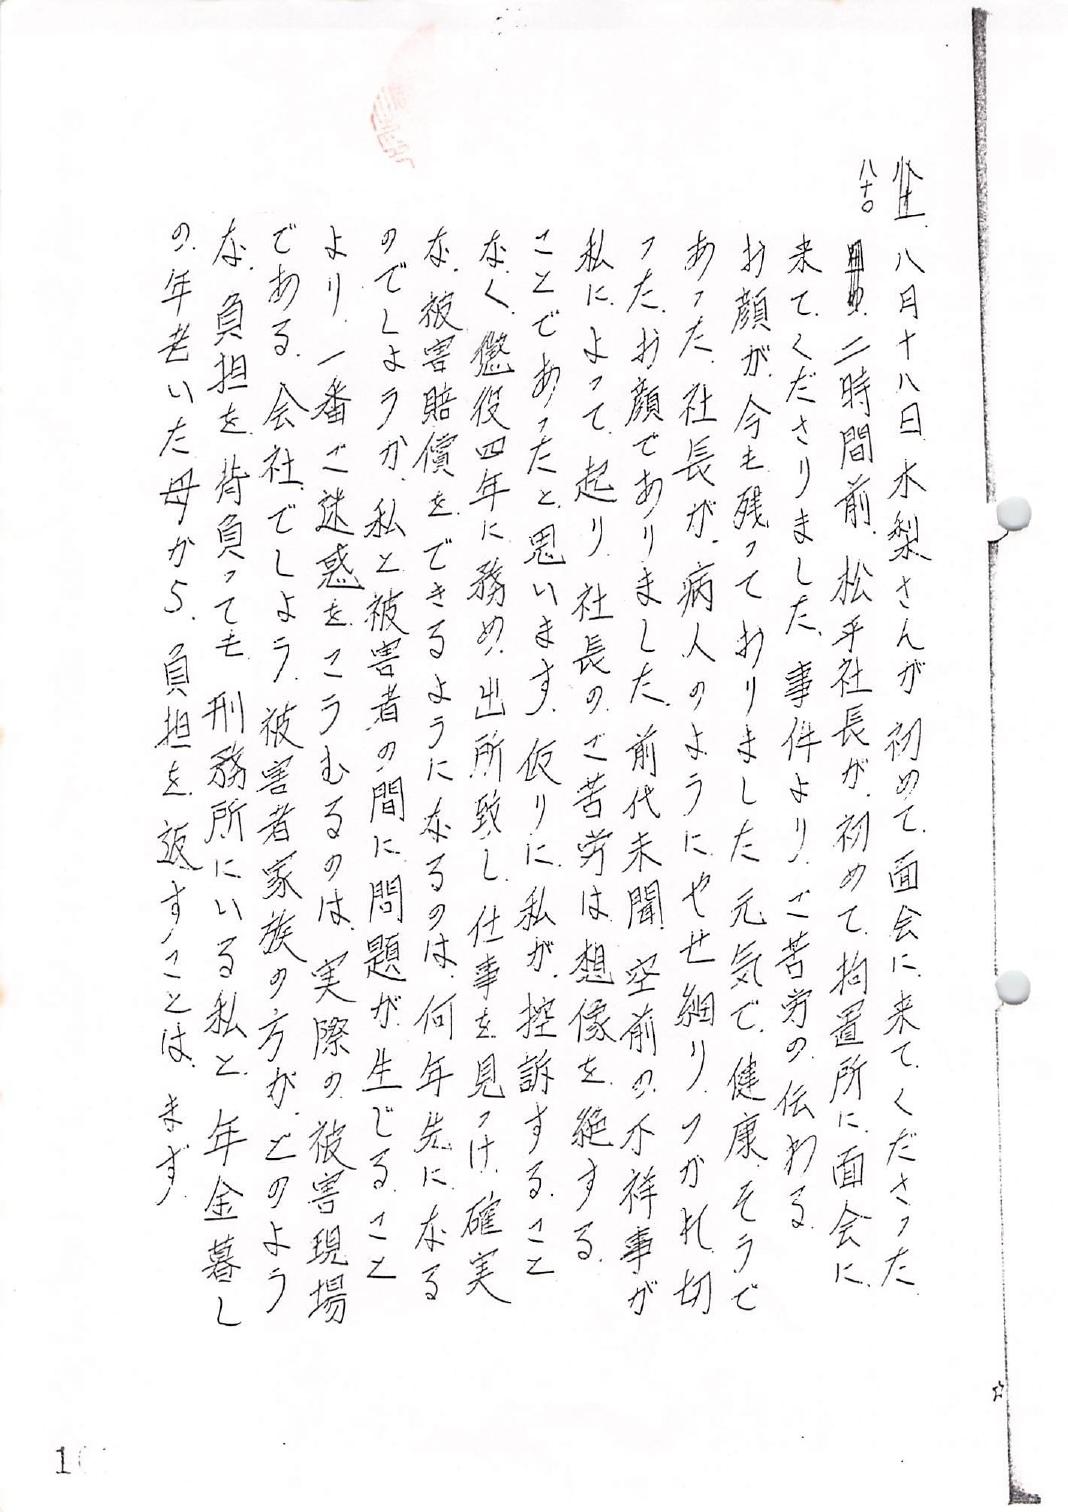 八月十八日、水梨さんが初めて、面会に来てくださった
二時間前、松平社長が、初めて、拘置所に、面会に、
八十。
来て、くださりました、事件より、ご苦労の、伝わる、
お顔が、今も残っておりました元気で、健康、そうで
あった、社長が、病人のようにやせ細り、つかれ切
った、お顔でありました、前代未聞、空前の不祥事が
私に、よって、起り、社長のご苦労は想像を、絶する
ことであったと思います、仮りに、私が、控訴すること
なく、懲役四年に務め、出所致し、仕事を見つけ、確実
な、被害賠償をできるようになるのは、何年先になる
のでしょうか、私と被害者の間に問題が生じること
より、一番ご迷惑をこうむるのは、実際の被害現場
である、会社でしょう、被害者家族の方が、どのよう
な、負担を、背負っても、刑務所にいる私と、年金暮し
の、年老いた母から、負担を、返すことは、まず、
1